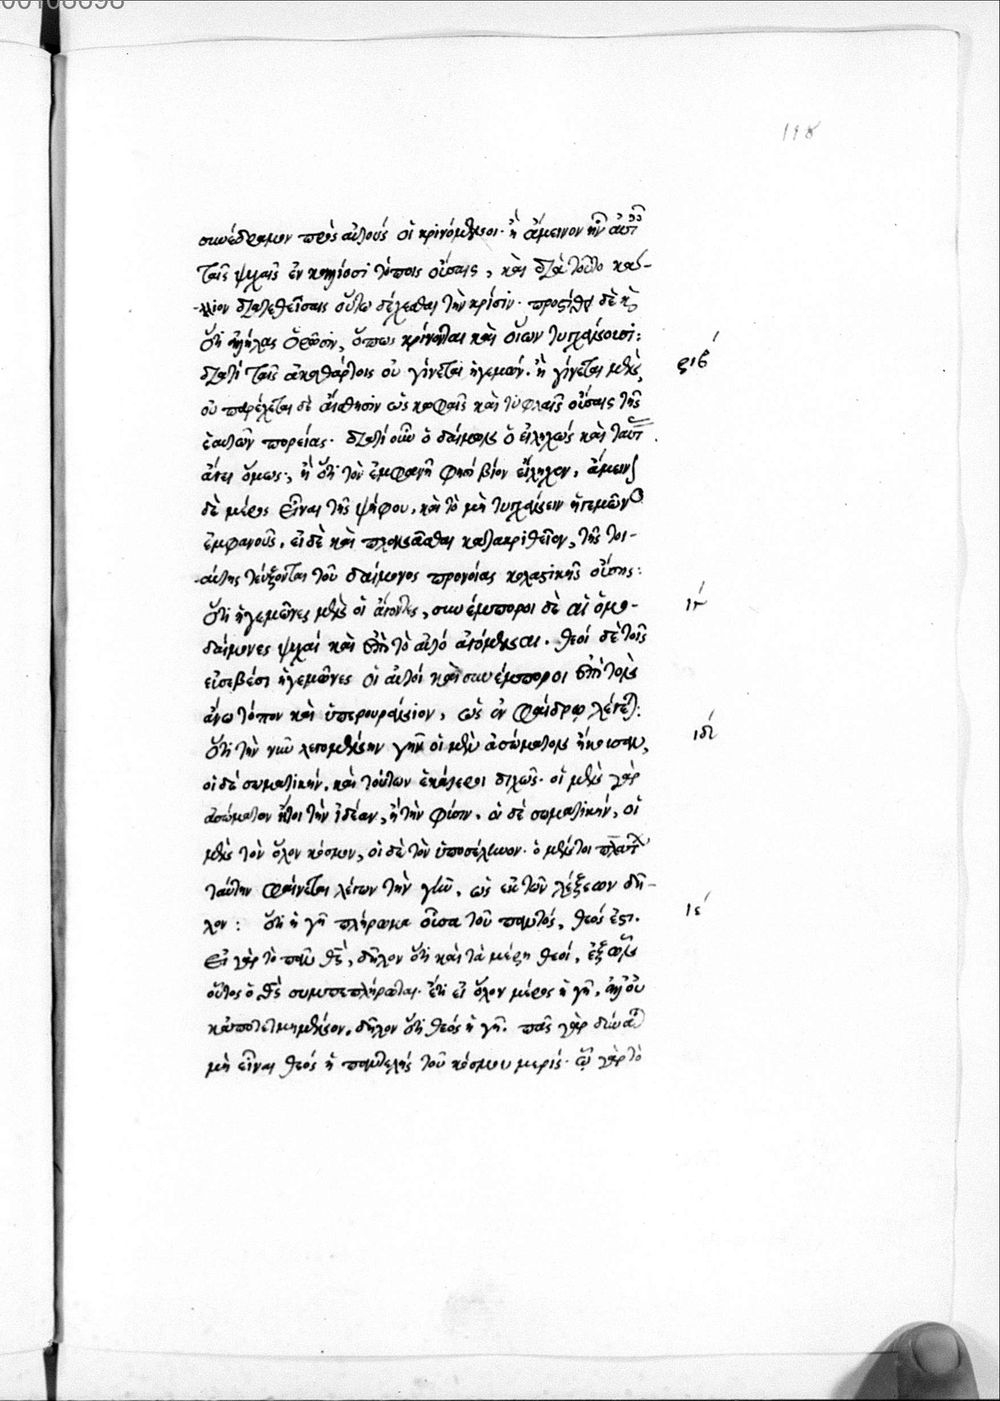 00108098
118
συνέδραμον πρὸς αὐτοὺς οἱ κρινόμενοι· ἢ ἄμεινον ἦν αὐ
ταῖς ψυχαῖς ἐν τόποις οὔσαις, καὶ διὰ τοῦτο κάλ-
λιον διατεθείσαις οὕτω δέχεσθαι τὴν κρίσιν· προστίθει δὲ καὶ
ὅτι ὁρῶσιν, ὅπως κρίνονται καὶ οἵων τυγχάνουσι:
διατί ταῖς ἀκαθάρτοις οὐ γίνεται ἡγεμών. ἢ γίνεται μὲν,
ριβ
οὐ παρέχεται δὲ αἴσθησιν ὡς κωφαῖς καὶ τυφλαῖς οὔσαις τῆς
ἑαυτῶν πορείας· διατί οὖν ὁ δαίμων ὁ εἰληχὼς καὶ ταύτ
ἄγει ὅμως; ἢ ὅτι τὸν ἐμφανῆ φησὶ βίον εἴληχεν, ἄμεινον
δὲ μέρος εἶναι τῆς ψήφου, καὶ τὸ μὴ τυγχάνειν ἡγεμόνος
ἐμφανοῦς. εἰ δὲ καὶ πλανᾶσθαι κατακριθεῖεν, τῆς τοι-
αύτης τεύξονται τοῦ δαίμονος προνοίας κολαστικῆς οὔσης:
ὅτι ἡγεμόνες μὲν οἱ ἄγοντες, συνέμποροι δὲ αἱ ὁμο-
ιγ
δαίμονες ψυχαὶ καὶ ἐπὶ τὸ αὐτὸ ἀγόμεναι. θεοὶ δὲ τοῖς
εὐσεβέσι ἡγεμόνες οἱ αὐτοὶ καὶ συνέμποροι ἐπὶ τὸν
ἄνω τόπον καὶ ὑπερουράνιον, ὡς ἐν Φαίδρῳ λέγεται:
ὅτι τὴν νῦν λεγομένην γῆν οἱ μὲν ἀσώματον ἤκουσαν,
ιδ
οἱ δὲ σωματικήν. καὶ τούτων ἑκάτεροι διχῶς· οἱ μὲν γὰρ
ἀσώματον ἤτοι τὴν ἰδέαν, ἢ τὴν φύσιν. οἱ δὲ σωματικήν, οἱ
μὲν τὸν ὅλον κόσμον, οἱ δὲ τὸν ὑποσέληνον· ὁ μέντοι πλάτ
ταύτην φαίνεται λέγων τὴν γῆν, ὡς ἐκ τῶν λέξεων δῆ-
λον: ὅτι ἡ γῆ πλήρωμα οὖσα τοῦ παντός, θεός ἐστι.
ιε
εἰ γὰρ τὸ πᾶν θς, δῆλον ὅτι καὶ τὰ μέρη θεοί, ἐξ ὧν
οὗτος ὁ θς συμπεπλήρωται. ἔτι εἰ ὅλον μέρος ἡ γῆ, ἀλλ' οὐ
κἀποτετμημένον, δῆλον ὅτι θεὸς ἡ γῆ. πῶς γὰρ δύνατ
μὴ εἶναι θεὸς ἡ παντελὴς τοῦ κόσμου μερίς· ᾧ γὰρ τὸ